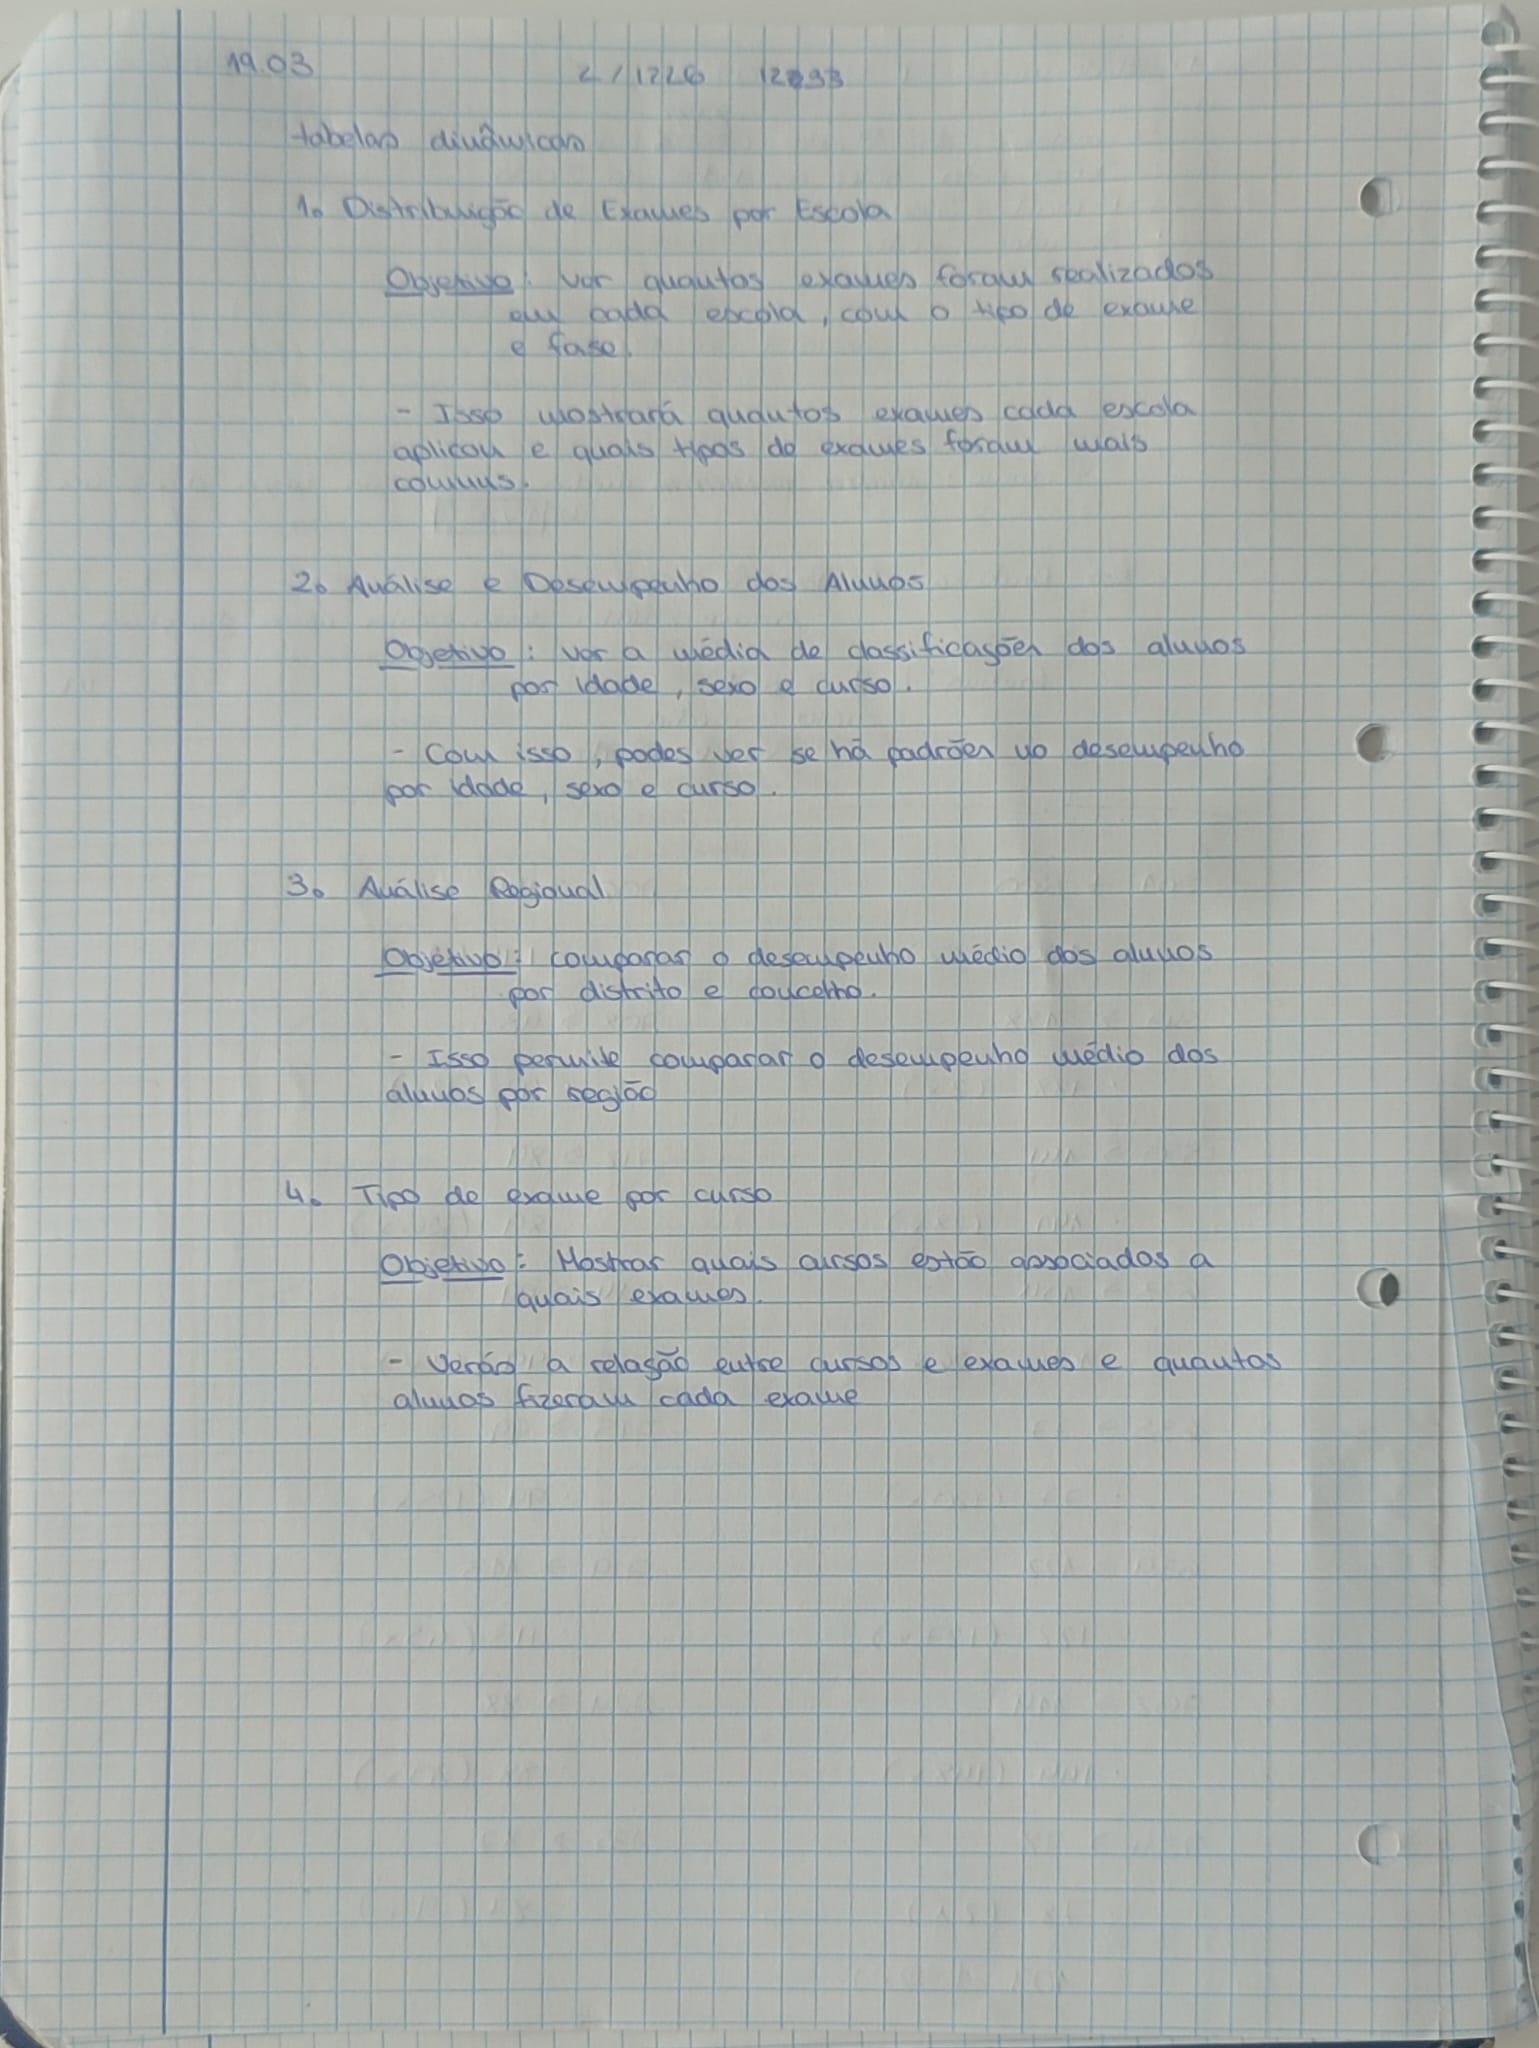 19.03
tabelas dinâmicas
1. Distribuição de Exames por Escola
Objetivo: ver quantos exames foram realizados
em cada escola, com o tipo de exame
e fase.
- Isso mostrará quantos exames cada escola
aplicou e quais tipos de exames foram mais
comuns.
2. Análise e Desempenho dos Alunos
Objetivo: ver a média de classificações dos alunos
por idade, sexo e curso.
- Com isso, podes ver se há padrões no desempenho
por idade, sexo e curso.
3. Análise Regional
Objetivo: comparar o desempenho médio dos alunos
por distrito e concelho.
- Isso permite comparar o desempenho médio dos
alunos por região
4. Tipo de exame por curso
Objetivo: Mostrar quais cursos estão associados a
quais exames.
- Verão a relação entre cursos e exames e quantos
alunos fizeram cada exame